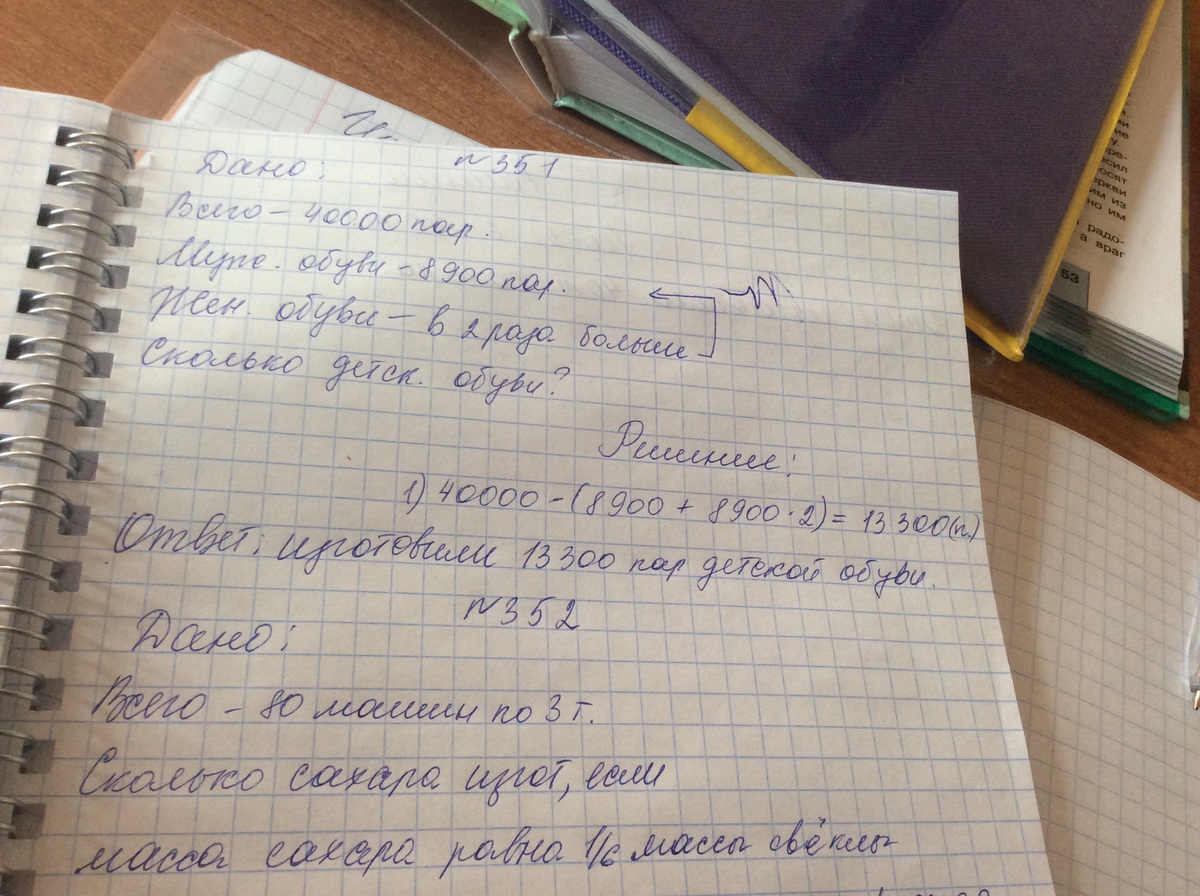 №351
Дано:
Всего - 40000 пар.
Муж. обуви - 8900 пар.
Жен. обуви - в 2 раза больше
Сколько детск. обуви?
Решение:
1) 40000 - (8900 + 8900 · 2) = 13300 (п.)
Ответ: изготовили 13300 пар детской обуви.
№352
Дано:
Всего - 80 машин по 3 т.
Сколько сахара изгот, если
масса сахара равна 1/6 массы свёклы
53